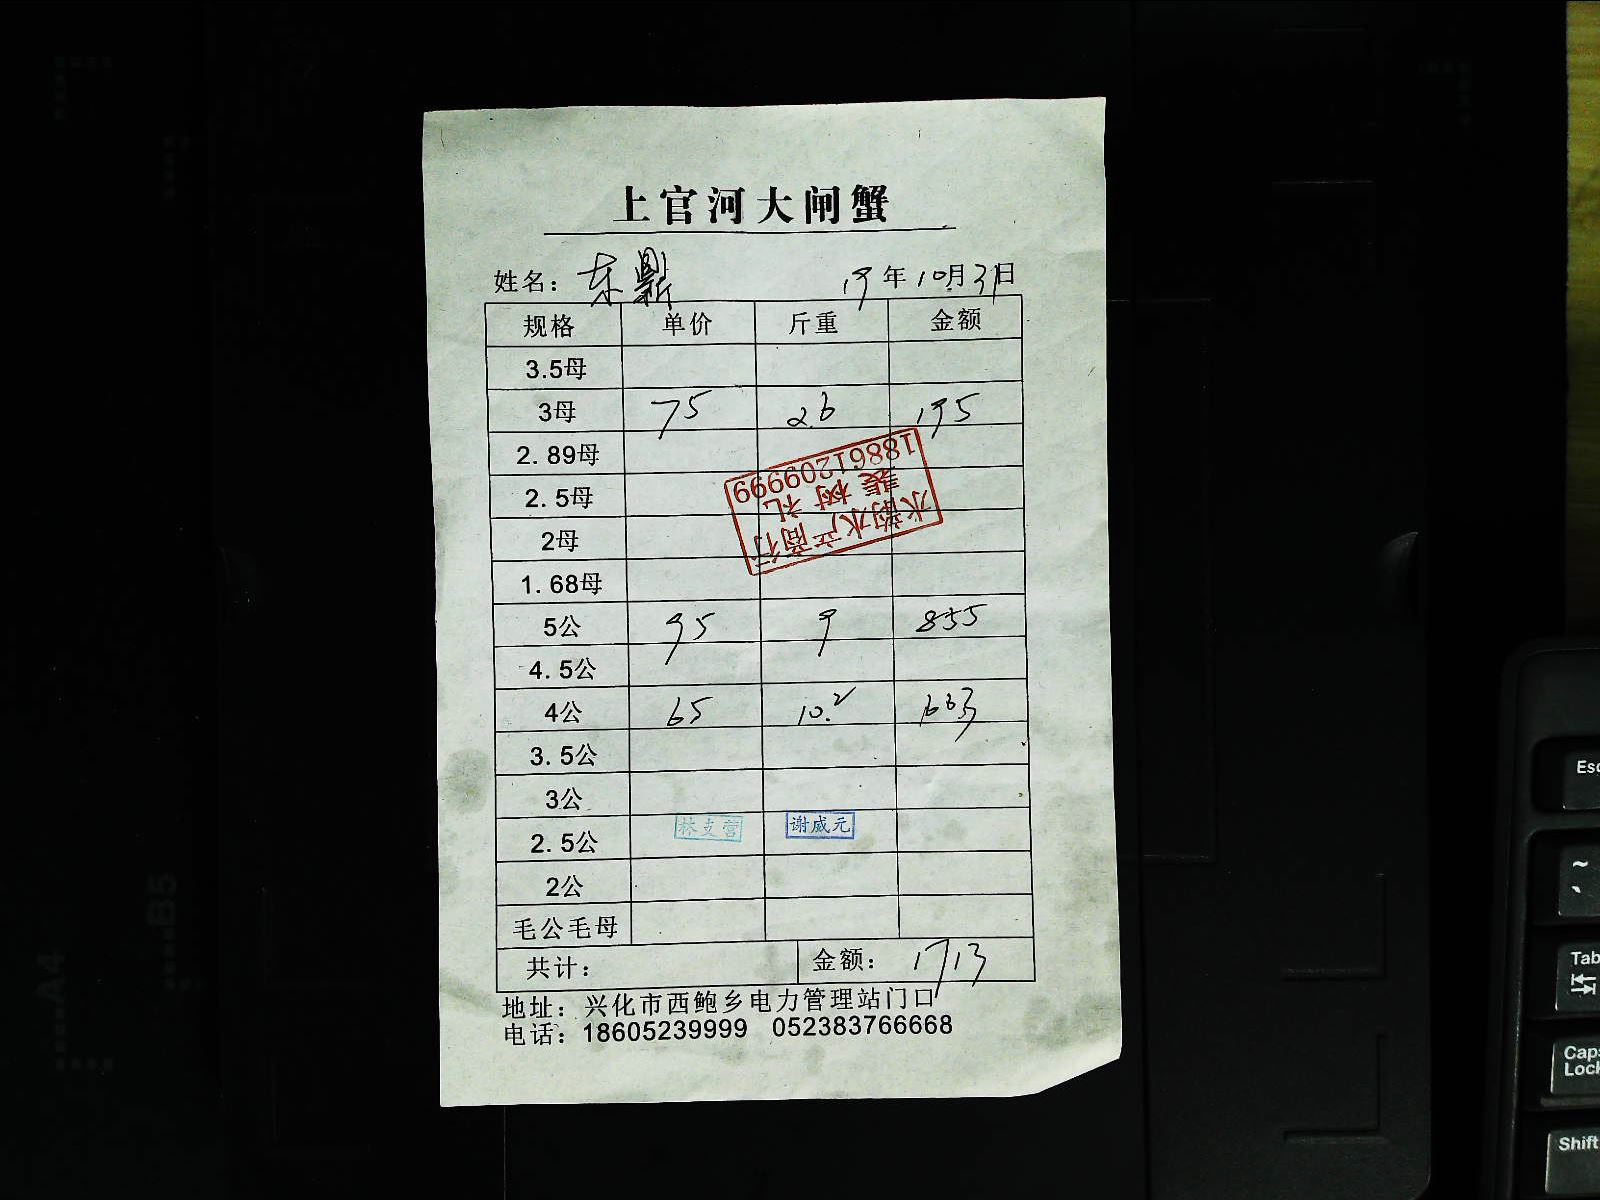 上官河大闸蟹
姓名: 东鼎 19年10月31日
规格 单价 斤重 金额
3.5母
3母 75 2.6 195
2.89母
2.5母
2母
1.68母
水韵水产商行
裴树礼
18861209999
5公 95 9 855
4.5公
4公 65 10.2 663
3.5公
3公
2.5公 林支营 谢威元
2公
毛公毛母
共计: 金额: 1713
地址: 兴化市西鲍乡电力管理站门口
电话: 18605239999 052383766668
A4
B5
Esc
~
`
Tab
Caps
Lock
Shift